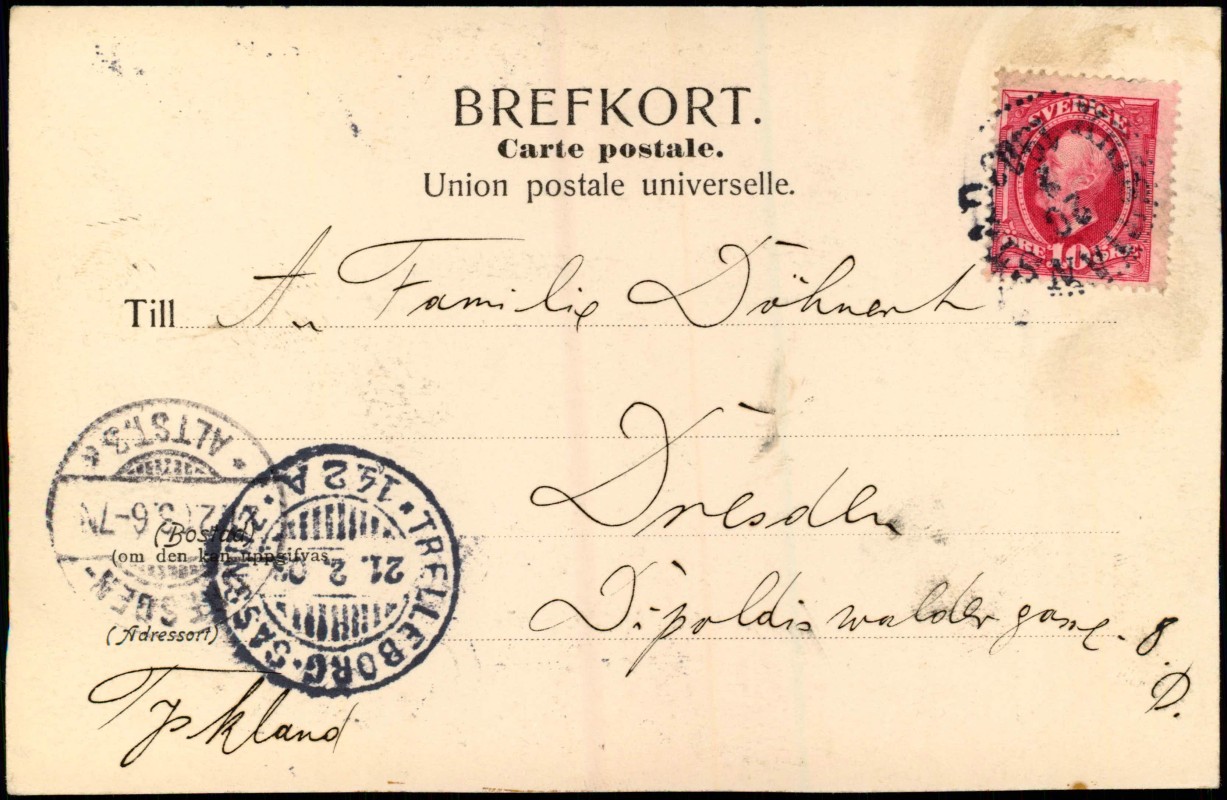 BREFKORT.
Carte postale.
Union postale universelle.
SVERIGE
10
Till An Familie Döhnert
Dresden
ALTST. 3 e
6-7N
(Bostad)
(om den kan uppgifvas
TRELLEBORG-SASSNITZ
142 A
21. 2. 0
Dipoldiswaldergasse. 8.
(Adressort)
D.
Tyskland